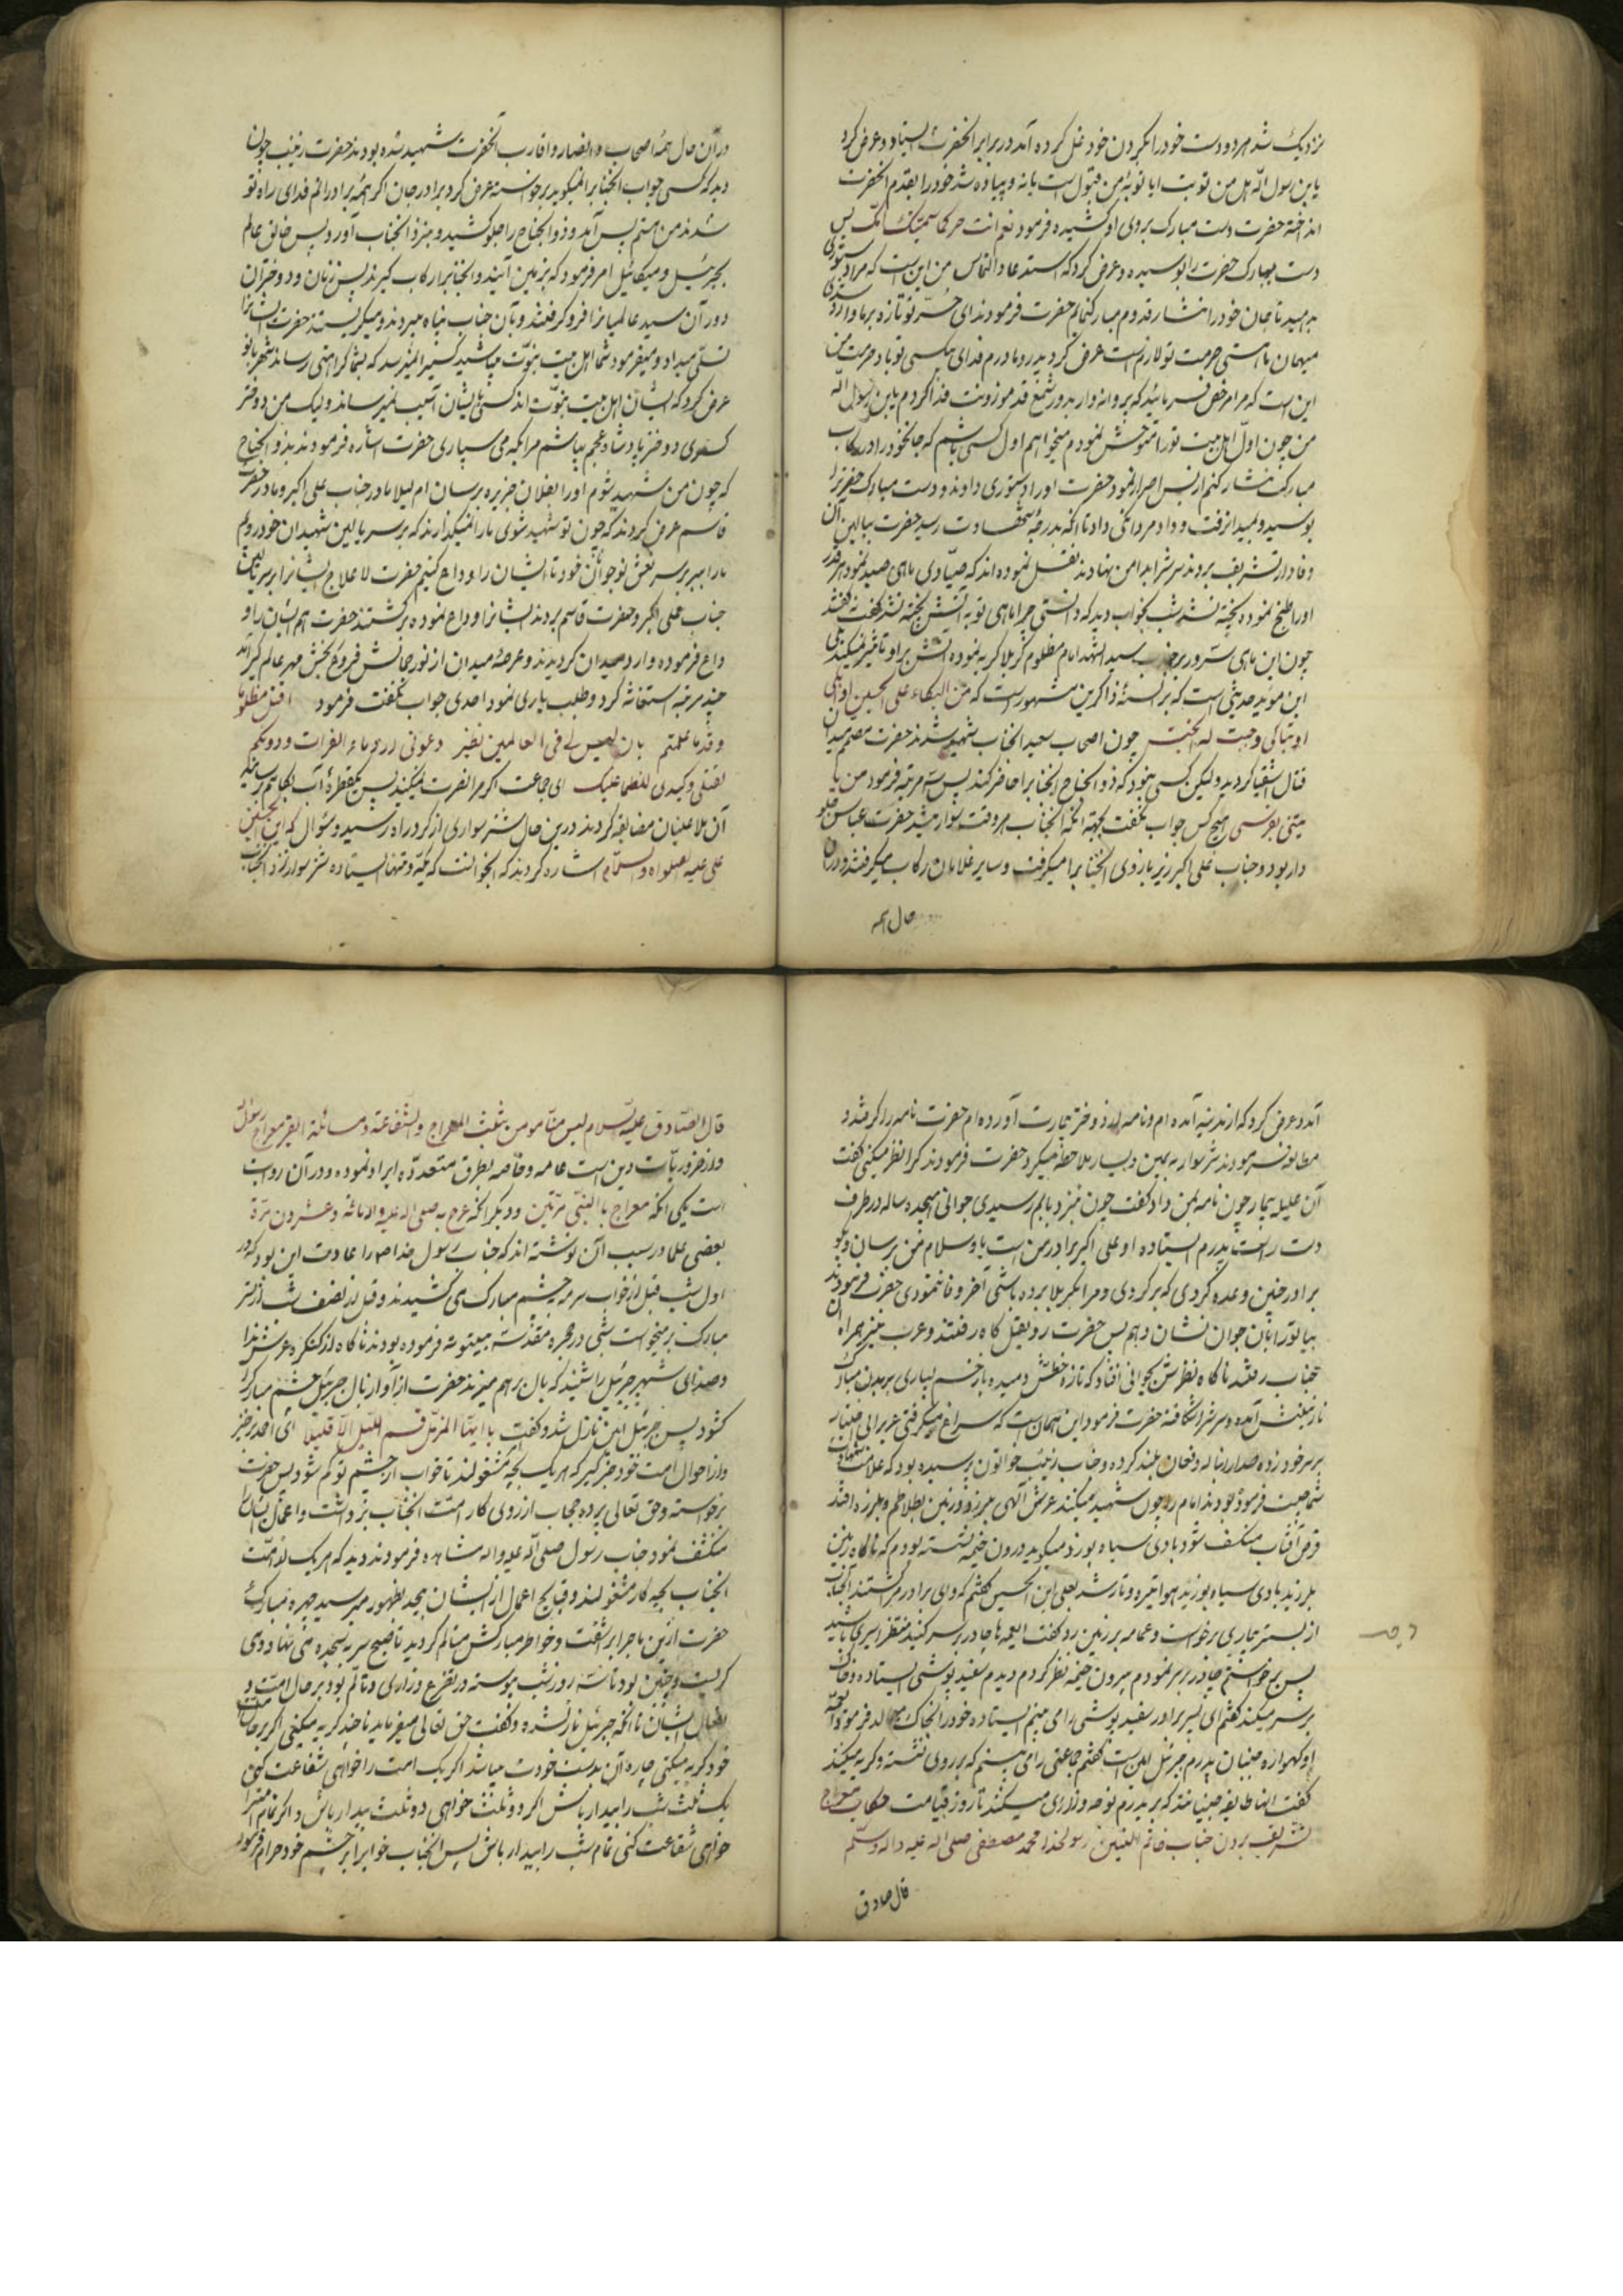 نزدیک شد هر دو دست خود را بگردن خود غل کرده آمد در برابر آنحضرت ایستاد و عرض کرد
یابن رسول الله هل من توبت ایا توبهٔ من قبول است یا نه و پیاده شد خود را بقدم آنحضرت
انداخته حضرت دست مبارک بروی او کشیده فرمود نعم انت حر کما سمیتک امک پس
دست مبارک حضرت را بوسیده و عرض کرد که استدعا و التماس من این است که مرا دستوری
بدهید تا جان خود را نثار قدوم مبارک نمایم حضرت فرمودند ای حر تو تازه بر ما وارد شدی
میهمان ما هستی حرمت تو لازم است عرض کرد پدر و مادرم فدای بیکسی تو باد حرمت من
این است که مرا مرخص فرمائید که پروانه وار بدور شمع قد موزونت فدا کردم یابن رسول الله
من چون اول اهل بیت تو را متوحش نمودم میخواهم اول کسی باشم که جان خود را در رکاب
مبارکت نثار کنم از بس اصرار نمود حضرت او را دستوری دادند و دست مبارک حضرت را
بوسید و بمیدان رفت و داد مردانگی داد تا انکه بدرجهٔ شهادت رسید حضرت ببالین آن
وفادار تشریف بردند سرش را بدامن نهادند نقل نموده اند که صیادی ماهی صید نمود هر قدر
او را طبخ نموده پخته نشد شب بخواب دید که دانستی چرا ماهی تو به آتش پخته نشد گفت نه گفتند
چون این ماهی سه روز بر سید الشهدا امام مظلوم کربلا گریه نموده آتش بر او تاثیر نمیکند
این مؤید حدیثی است که بر السنهٔ ذاکرین مشهور است که من البکاء علی الحسین او ابکی
او تباکی وجبت له الجنة چون اصحاب سعید آنجناب شهید شدند حضرت مصمم میدان
قتال اشقیا گردید ولیکن کسی نبود که ذوالجناح آنجناب را حاضر کند پس سه مرتبه فرمود من یا
تینی بفرسی هیچ کس جواب نگفت بجهة انکه آنجناب هر وقت سوار میشد حضرت عباس جلو
دار بود و جناب علی اکبر زیر بازوی آنجناب را میگرفت و سایر غلامان رکاب میگرفتند و در آن
حال همه
در آن حال همهٔ اصحاب و انصار و اقارب آنحضرت شهید شده بودند حضرت زینب چون
دید که کسی جواب آنجناب را نمیگوید برخواسته عرض کرد برادر جان اگر همهٔ برادرانم فدای راه تو
شدند من هستم پس آمد و ذوالجناح را جلو کشید و بنزد آنجناب آورد پس خالق عالم
بجبرئیل و میکائیل امر فرمود که بزمین آیند و آنجناب را رکاب گیرند پس زنان و دختران
دور آن سید عالمیان را فرو گرفتند و بآن جناب پناه میبردند و میگریستند حضرت ایشان را
تسلی میداد و میفرمود شما اهل بیت نبوت میباشید کسی را نمیرسد که بشما کراهتی رساند شهربانو
عرض کرد که ایشان اهل بیت نبوت اند کسی بایشان آسیب نمیرساند ولیک من دختر
کسری دختر پادشاه عجم میباشم مرا بکه می سپاری حضرت اشاره فرمودند بذوالجناح
که چون من شهید شوم او را بفلان جزیره برسان ام لیلا مادر جناب علی اکبر و مادر حضرت
قاسم عرض کردند که چون تو شهید شوی ما را نمیگذارند که بر سر بالین شهیدان خود رویم
ما را ببر بر سر نعش نوجوانان خود تا ایشان را وداع کنیم حضرت لا علاج ایشان را بر سر بالین
جناب علی اکبر و حضرت قاسم بردند ایشان را وداع نموده برگشتند حضرت هم ایشان را و
داع فرموده وارد میدان گردیدند و عرصهٔ میدان از نور جمالش فروغ بخش مهر عالم گیر آمد
چند مرتبه استغاثه کرد و طلب یاری نمود احدی جواب نگفت فرمود اقتل مظلوما
وقد ما علمتم بان لیس لی فی العالمین نظیر دعونی ارد ماء الفرات و دونکم
لقتلی و کبدی للظما علیک ای جماعت اگر مرا نصرت نمیکنید پس یکقطرهٔ آب بکامم برسانید
آن ملاعینان مضایقه کردند در این حال شتر سواری از گرد راه رسید و سؤال که این الحسین بن
علی علیه الصلواة والسلام اشاره کردند که آنجوانست که یکه و تنها ایستاده شتر سوار نزد آنجناب
آمد و عرض کرد که از مدینه آمده ام و نامه از دختر بیمارت آورده ام حضرت نامه را گرفتند و
مطالعه فرمودند شتر سوار به یمین و یسار ملاحظه میکرد حضرت فرمودند کرا نظر میکنی گفت
آن علیلهٔ بیمار چون نامه بمن داد گفت چون نزد بابم رسیدی جوانی هیجده ساله در طرف
دست راست پدرم ایستاده او علی اکبر برادر من است باو سلام من برسان و بگو
برادر چنین وعده کردی که برگردی و مرا بکربلا برده باشی آخر وفا ننمودی حضرت فرمودند
بیا تو را بآن جوان نشان دهم پس حضرت رو بقتل گاه رفتند و عرب نیز همراه آن
جناب رفتند ناگاه نظرش بجوانی افتاد که تازه خطش دمیده با زخم بسیاری بر بدن مبارک
نازنینش آمده و سرش شکافته حضرت فرمود این همان است که سراغ میگرفتی عرب بی اختیار
بر سر خود زده صدا را بناله و فغان بلند کرده و جناب زینب خواتون پرسیده بود که علامت شهادت
شما چیست فرموده بودند امام را چون شهید میکنند عرش الهی میلرزد و زمین بطلاطم و بلرزه افتد
قرص آفتاب منکسف شود بادی سیاه بوزد میگوید درون خیمه نشسته بودم که ناگاه زمین
بلرزید بادی سیاه بوزید هوا تیره و تار شد بعلی ابن الحسین گفتم که وای برادرم را کشتند آنجناب
از بستر بیماری برخواست و عمامه بر زمین زد و گفت ایعمه ها چادر بر سر کنید منتظر اسیری باشید
پس برخواستم چادر بر سر نمودم بیرون خیمه نظر کردم دیدم سفید پوشی ایستاده و خاک
بر سر میکند گفتم ای پسر برادر سفید پوشی را می بینم ایستاده خود را بخاک میمالد فرمود ایعمه
او گهواره جنبان پدرم جبرئیل امین است گفتم جماعتی را می بینم که بر روی نشسته و گریه میکنند
گفت انها طایفه جنیانند که بر پدرم نوحه و زاری میکنند تا روز قیامت حکایت معراج
تشریف بردن جناب خاتم النبیین رسولخدا محمد مصطفی صلی الله علیه و اله وسلم
قال صادق
قال الصادق علیه السلام لیس منا مومن من المعراج والشفاعة و مسائلة القبر معراج رسول
و از ضروریات دین است عامه و خاصه بطرق متعدده ایراد نموده و در آن روایت
است یکی انکه معراج با النبی مرتین و دیگر انکه عرج به صلی الله علیه و اله مائة و عشرون مرة
بعضی علما در سبب آن نوشته اند که جناب رسول خدا ص را عادت این بود که در
اول شب قبل از خواب سرمه بچشم مبارک می کشیدند و قبل از نصف شب از بستر
مبارک بر میخواست شبی در حجره مقدسه بیتوته فرموده بودند ناگاه از کنگره عرش ندا
و صدای شهپر جبرئیل را شنید که بال بر هم میزند حضرت از آواز بال جبرئیل چشم مبارک
گشود پس جبرئیل امین نازل شد و گفت یا ایها المزمل قم اللیل الا قلیلا ای احمد برخیز
و از احوال امت خود خبر گیر که هر یک بچه مشغولند تا خواب از چشم تو کم شود پس حضرت
برخواسته و حق تعالی پرده حجاب از روی کار امت آنجناب برداشت و اعمال ایشان را
منکشف نمود جناب رسول صلی الله علیه و اله مشاهده فرمودند دید که هر یک از امت
آنجناب بچه کار مشغولند و قبایح اعمال از ایشان بیحد بظهور میرسید چهره مبارک
حضرت از این ماجرا برآشفت و خواطر مبارکش متالم گردید تا صبح سر بسجده می نهاد و می
گریست و چنین بود تا سه روز شب پیوسته در تضرع و زاری و تالم بود بر حال امت و
افعال ایشان تا انکه جبرئیل نازل شده و گفت حق تعالی میفرماید تا چند گریه میکنی اگر بر حال امت
خود گریه میکنی چاره آن بدست خودت میباشد اگر یک امت را خواهی شفاعت کنی
یک ثلث شب را بیدار باش اگر دو ثلث خواهی دو ثلث بیدار باش و اگر تمام امت را
خواهی شفاعت کنی تمام شب را بیدار باش پس آنجناب خواب را بر چشم خود حرام فرمود